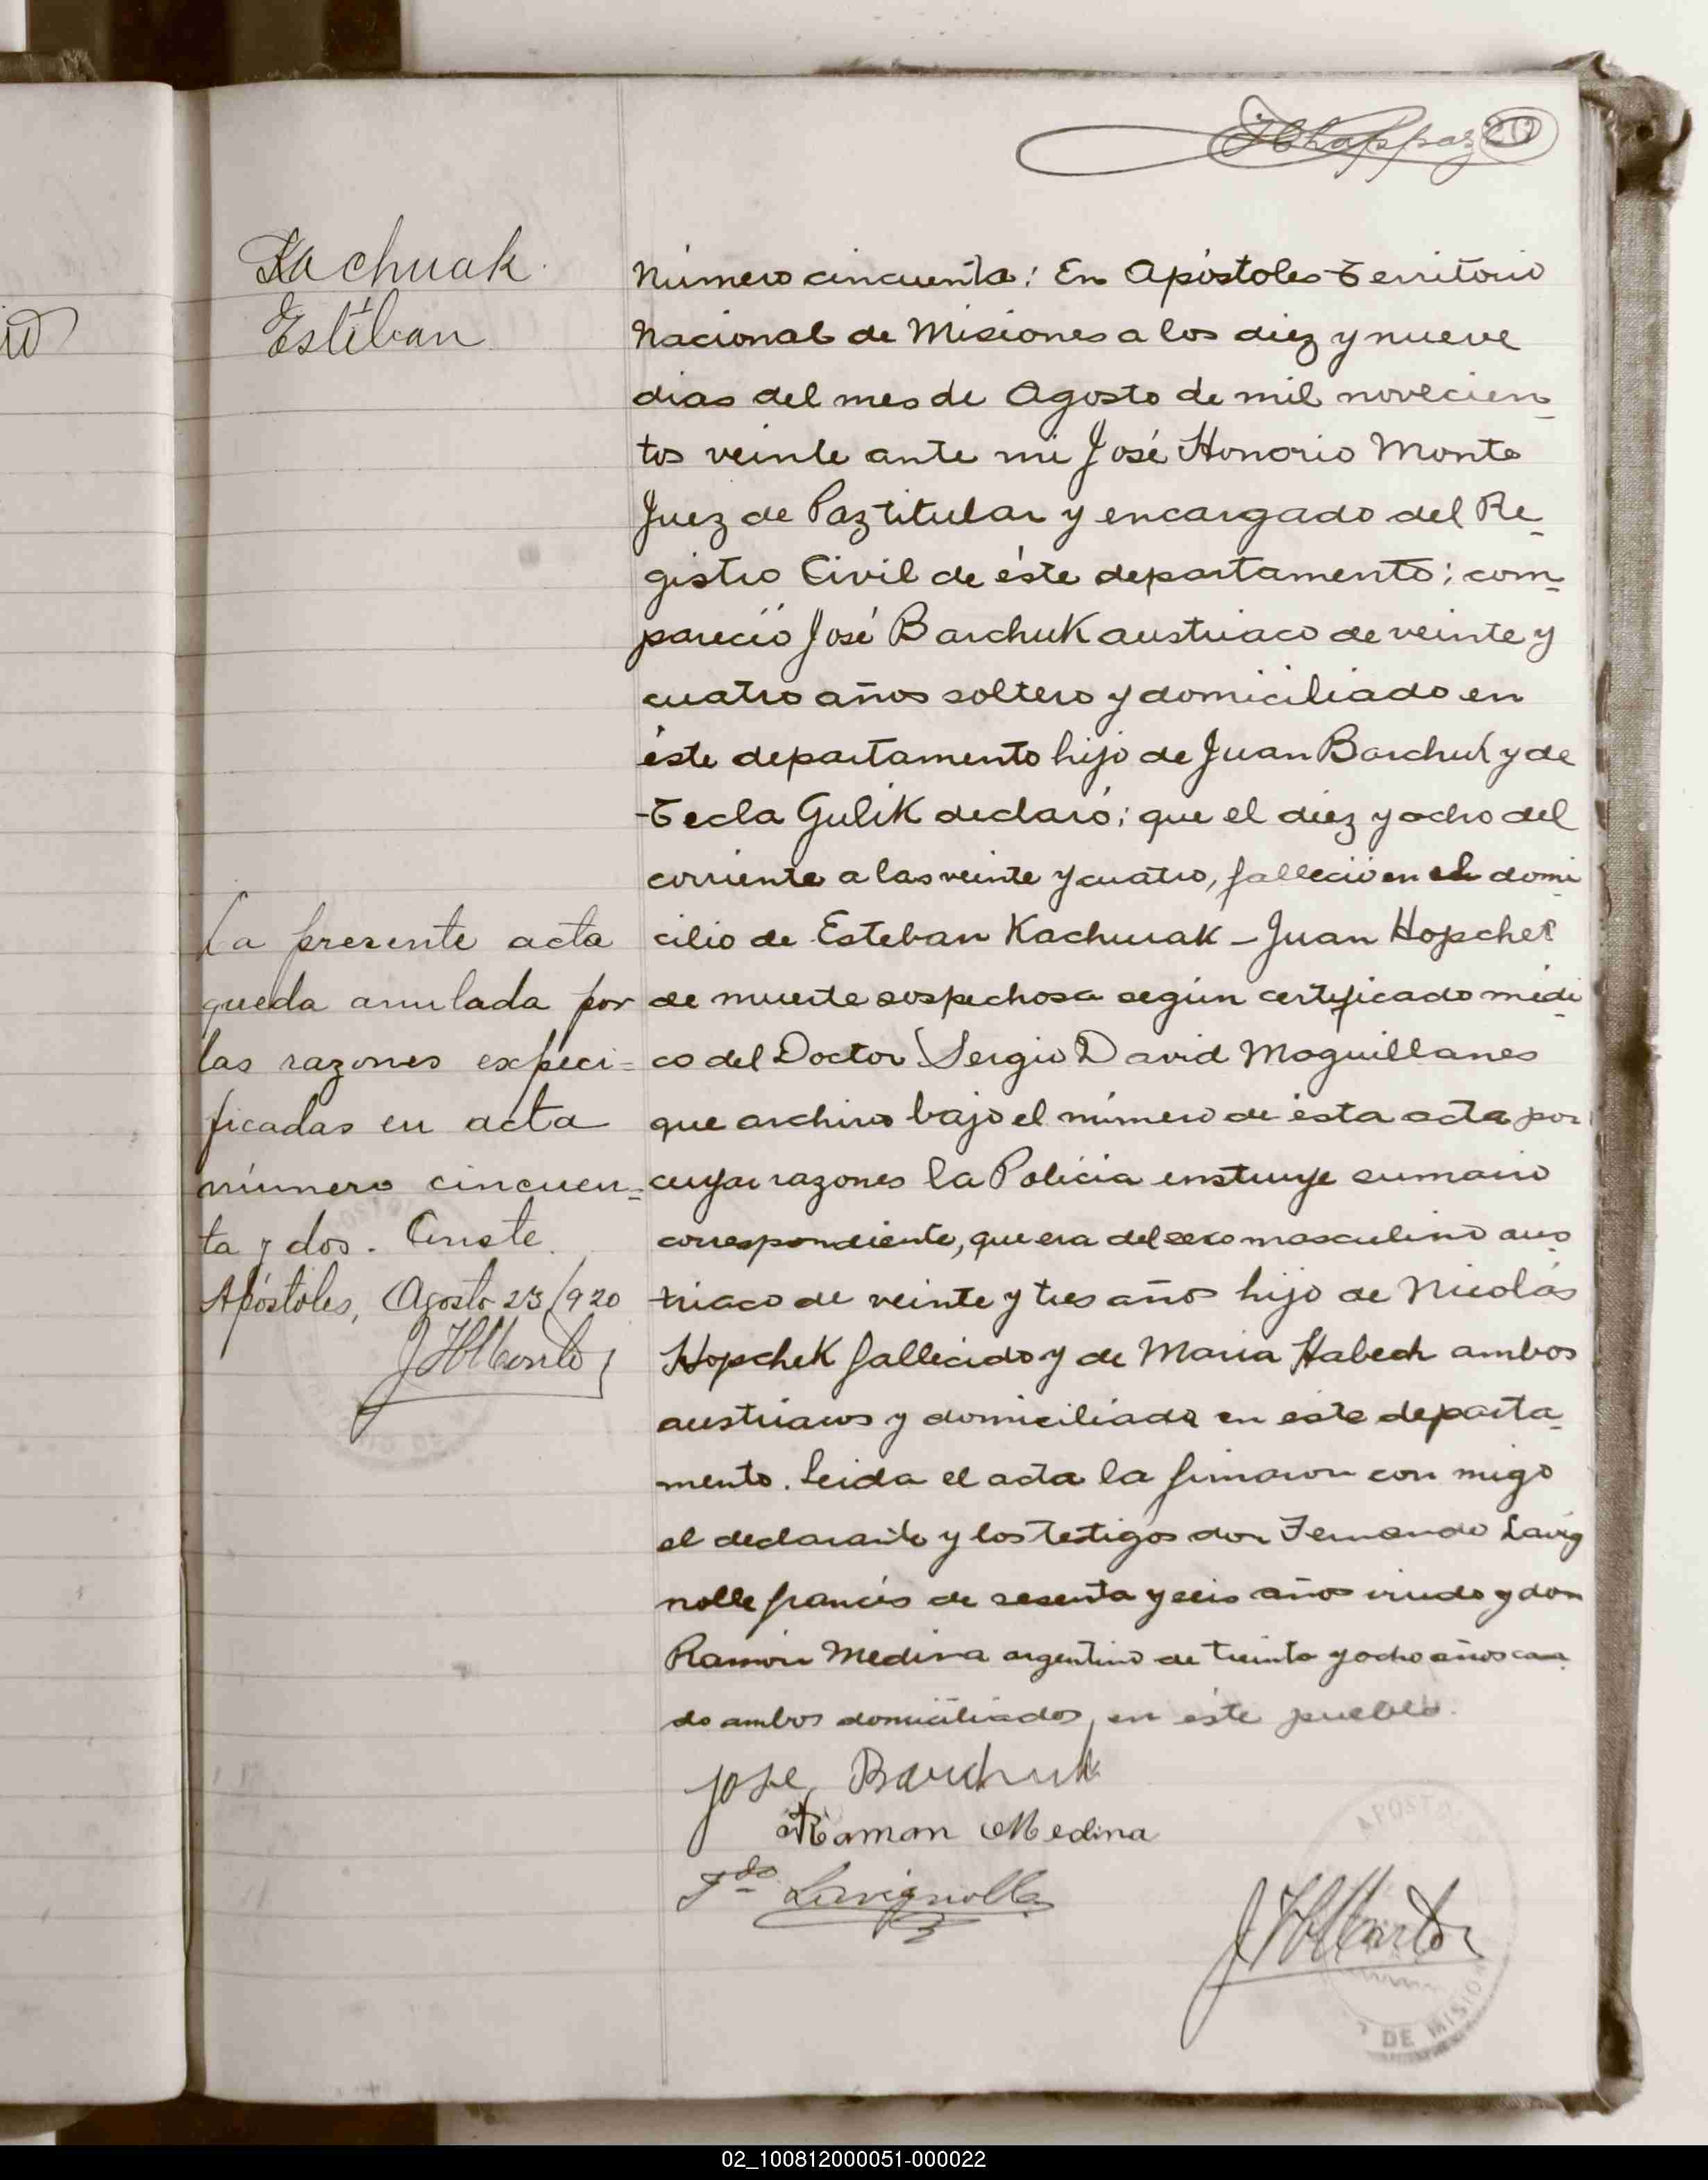 JChappaz 20
Kachuak
Estéban
Número cincuenta: En Apóstoles Territorio
Nacional de Misiones a los diez y nueve
dias del mes de Agosto de mil novecien-
tos veinte ante mi José Honorio Monte
Juez de Paz titular y encargado del Re-
gistro Civil de éste departamento; com-
pareció José Barchuk austriaco de veinte y
cuatro años soltero y domiciliado en
éste departamento hijo de Juan Barchuk y de
Tecla Gulik declaró; que el diez y ocho del
corriente a las veinte y cuatro, falleció en el domi-
cilio de Esteban Kachuak - Juan Hopchek
de muerte sospechosa según certificado médi-
co del Doctor Sergio David Moguillanes
que archivo bajo el número de ésta acta por
cuyas razones la Policia instruye sumario
correspondiente, que era del sexo masculino aus-
triaco de veinte y tres años hijo de Nicolás
Hopchek fallecido y de Maria Habech ambos
austriacos y domiciliada en éste departa-
mento. Leida el acta la firmaron con migo
el declarante y los testigos don Fernando Lavig
nolle francés de sesenta y seis años viudo y don
Ramón Medina argentino de treinta y ocho años casa-
do ambos domiciliados, en éste pueblo.
La presente acta
queda anulada por
las razones expeci-
ficadas en acta
número cincuen-
ta y dos. Conste.
Apóstoles, Agosto 23/920
JHMonte
José Barchuk
Ramon Medina
Fdo Lavignolle
JHMonte
APOSTO
DE MISION
02_100812000051-000022